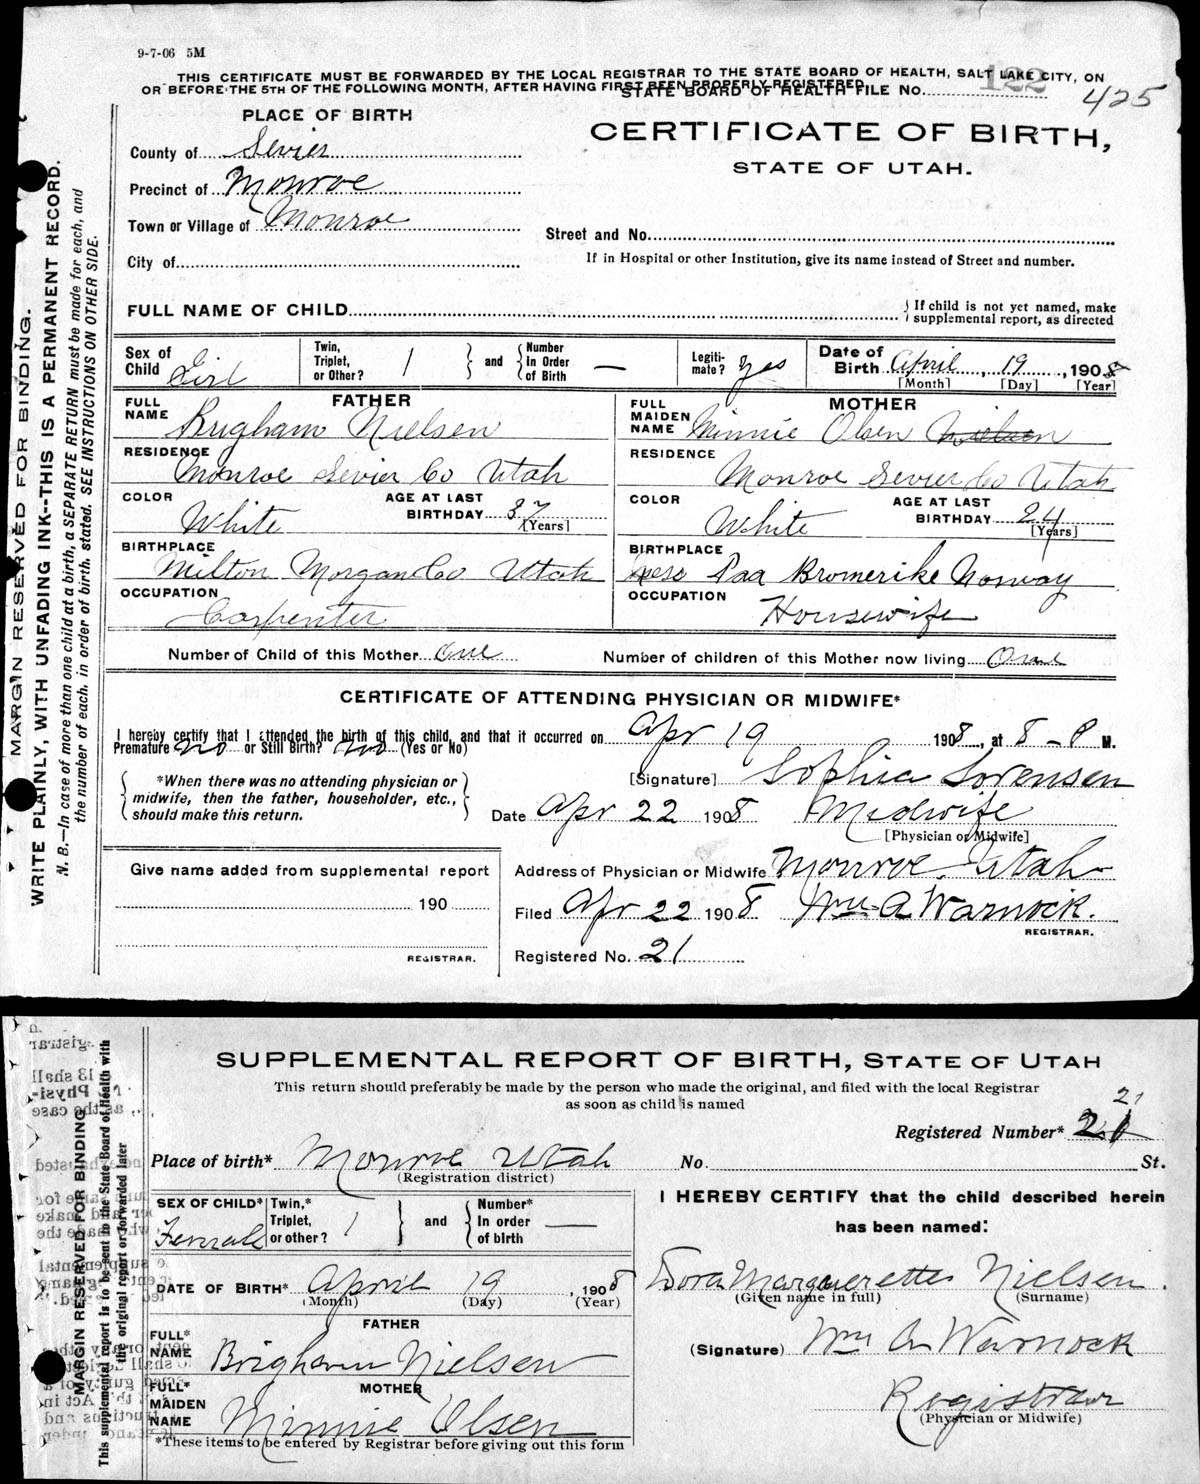 9-7-06 5M
THIS CERTIFICATE MUST BE FORWARDED BY THE LOCAL REGISTRAR TO THE STATE BOARD OF HEALTH, SALT LAKE CITY, ON
OR BEFORE THE 5TH OF THE FOLLOWING MONTH, AFTER HAVING FIRST BEEN PROPERLY REGISTERED
STATE BOARD OF HEALTH FILE NO. 122
425
PLACE OF BIRTH
CERTIFICATE OF BIRTH,
STATE OF UTAH.
County of Sevier
Precinct of Monroe
Town or Village of Monroe
Street and No.
City of
If in Hospital or other Institution, give its name instead of Street and number.
FULL NAME OF CHILD
If child is not yet named, make supplemental report, as directed
Sex of Child Girl
Twin, Triplet, or Other? 1 and Number In Order of Birth —
Legitimate? yes
Date of Birth April, 19, 1908
[Month] [Day] [Year]
FATHER
FULL NAME Brigham Nielsen
RESIDENCE Monroe Sevier Co Utah
COLOR White
AGE AT LAST BIRTHDAY 37 [Years]
BIRTHPLACE Milton Morgan Co Utah
OCCUPATION Carpenter
MOTHER
FULL MAIDEN NAME Minnie Olsen Nielsen
RESIDENCE Monroe Sevier Co Utah
COLOR White
AGE AT LAST BIRTHDAY 24 [Years]
BIRTHPLACE Paa Bromerike Norway
OCCUPATION Housewife
Number of Child of this Mother One
Number of children of this Mother now living One
CERTIFICATE OF ATTENDING PHYSICIAN OR MIDWIFE*
I hereby certify that I attended the birth of this child, and that it occurred on Apr 19 1908, at 8-P M.
Premature no or Still Birth? no (Yes or No)
*When there was no attending physician or midwife, then the father, householder, etc., should make this return.
[Signature] Sophia Sorensen
Date Apr 22 1908 Midwife
[Physician or Midwife]
Give name added from supplemental report
190
REGISTRAR.
Address of Physician or Midwife Monroe Utah
Filed Apr 22 1908 Wm A Warnock.
REGISTRAR.
Registered No. 21
MARGIN RESERVED FOR BINDING.
WRITE PLAINLY, WITH UNFADING INK--THIS IS A PERMANENT RECORD.
N. B.—In case of more than one child at a birth, a SEPARATE RETURN must be made for each, and
the number of each, in order of birth, stated. SEE INSTRUCTIONS ON OTHER SIDE.
SUPPLEMENTAL REPORT OF BIRTH, STATE OF UTAH
This return should preferably be made by the person who made the original, and filed with the local Registrar
as soon as child is named
21
Registered Number* 21
Place of birth* Monroe Utah No. St.
(Registration district)
SEX OF CHILD* Female
Twin,* Triplet, or other? 1 and Number* In order of birth —
DATE OF BIRTH* April 19, 1908
(Month) (Day) (Year)
FATHER
FULL* NAME Brigham Nielsen
MOTHER
FULL* MAIDEN NAME Minnie Olsen
*These items to be entered by Registrar before giving out this form
I HEREBY CERTIFY that the child described herein
has been named:
Dora Marguerette Nielsen.
(Given name in full) (Surname)
(Signature) Wm A Warnock
Registrar
(Physician or Midwife)
MARGIN RESERVED FOR BINDING
This supplemental report is to be sent to the State Board of Health with
the original report or forwarded later